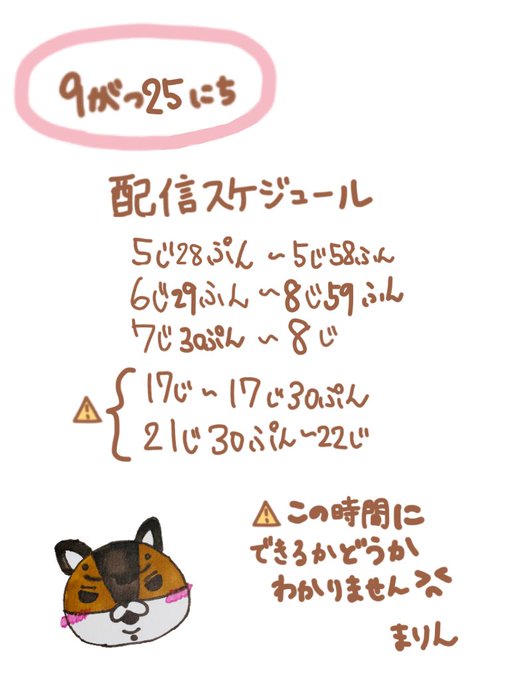 9がつ25にち
配信スケジュール
5じ28ぷん~5じ58ふん
6じ29ふん~8じ59ふん
7じ30ぷん~8じ
17じ~17じ30ぷん
21じ30ぷん~22じ
⚠この時間に
できるかどうか
わかりません><
まりん